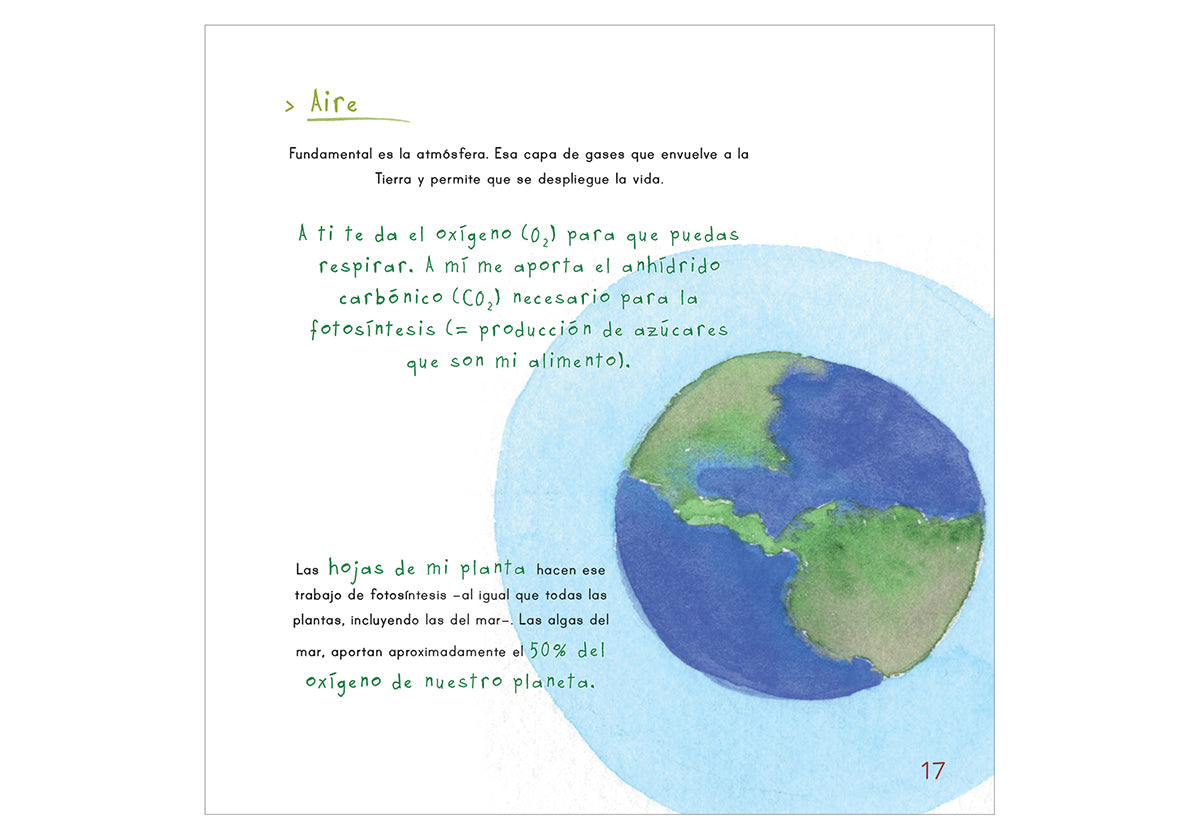 > Aire
Fundamental es la atmósfera. Esa capa de gases que envuelve a la
Tierra y permite que se despliegue la vida.
A ti te da el oxígeno (O₂) para que puedas
respirar. A mí me aporta el anhídrido
carbónico (CO₂) necesario para la
fotosíntesis (= producción de azúcares
que son mi alimento).
Las hojas de mi planta hacen ese
trabajo de fotosíntesis –al igual que todas las
plantas, incluyendo las del mar–. Las algas del
mar, aportan aproximadamente el 50% del
oxígeno de nuestro planeta.
17